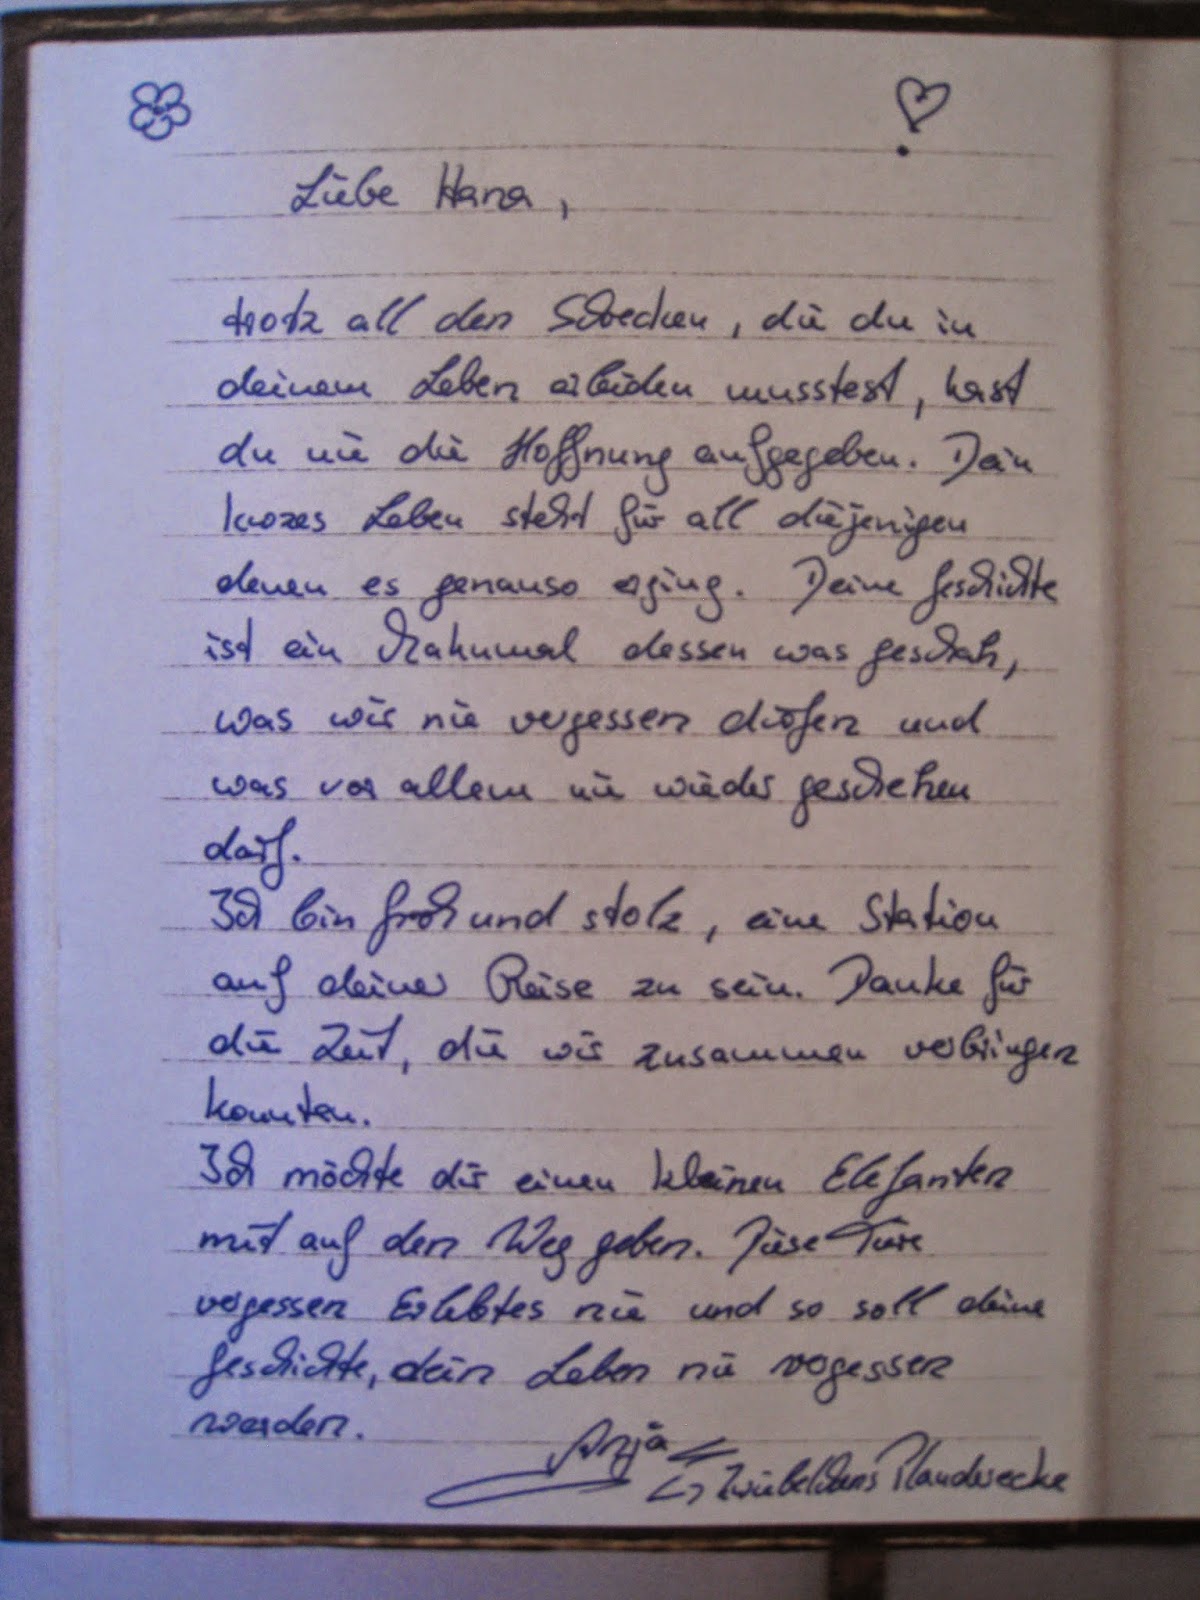 Liebe Hana,
trotz all den Schrecken, die du in
deinem Leben erleiden musstest, hast
du nie die Hoffnung aufgegeben. Dein
kurzes Leben steht für all diejenigen
denen es genauso erging. Deine Geschichte
ist ein Mahnmal dessen was geschah,
was wir nie vergessen dürfen und
was vor allem nie wieder geschehen
darf.
Ich bin froh und stolz, eine Station
auf deiner Reise zu sein. Danke für
die Zeit, die wir zusammen verbringen
konnten.
Ich möchte dir einen kleinen Elefanten
mit auf den Weg geben. Diese Tiere
vergessen Erlebtes nie und so soll deine
Geschichte, dein Leben nie vergessen
werden.
Anja
Zwiebelchens Plauderecke